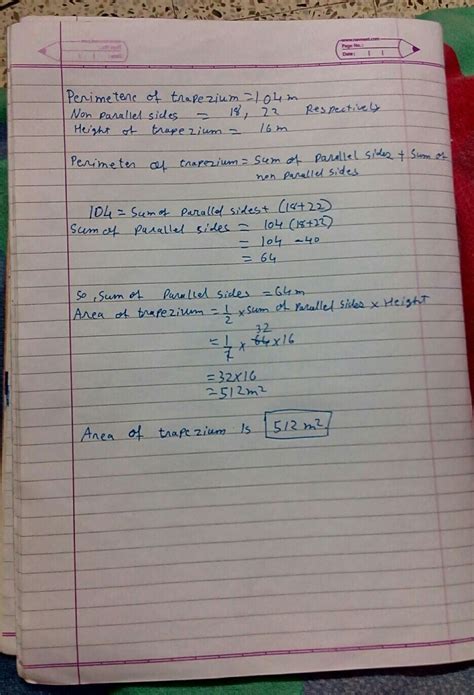 Page No.:
Date:
Perimetere of trapezium = 104 m
Non parallel sides = 18, 22 Respectively
Height of trapezium = 16 m
Perimeter of trapezium = Sum of Parallel sides + Sum of
non Parallel sides
104 = Sum of Parallel sides + (18+22)
Sum of Parallel sides = 104 (18+22)
= 104 - 40
= 64
So, Sum of Parallel sides = 64m
Area of trapezium = 1/2 × Sum of Parallel sides × Height
32
= 1/2 × 64 × 16
= 32 × 16
= 512 m²
Area of trapezium is 512 m²